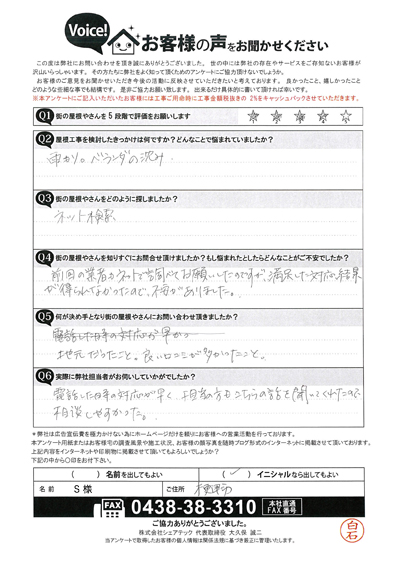 Voice!
お客様の声をお聞かせください
この度は弊社にお問い合わせを頂き誠にありがとうございました。世の中には弊社の存在やサービスをご存知ないお客様が
沢山いらっしゃいます。その方たちに弊社をよく知って頂くためのアンケートにご協力頂けないでしょうか。
お客様のご意見をお聞かせいただき今後の活動に反映させていただきたいと考えております。良かったこと、嬉しかったこと
どのような些細な事でも結構です。是非ご協力願い致します。出来るだけ具体的に書いて頂ければ幸いです。
※本アンケートにご記入いただいたお客様には工事ご用命時に工事金額税抜きの 2%をキャッシュバックさせていただきます。
Q1 街の屋根やさんを5段階で評価をお願いします
Q2 屋根工事を検討したきっかけは何ですか?どんなことで悩まれていましたか?
雨かり。ベランダの沈み.
Q3 街の屋根やさんをどのように探しましたか?
ネット検索
Q4 街の屋根やさんを知りすぐにお問合せ頂けましたか?もし悩まれたとしたらどんなことがご不安でしたか?
前回の業者がネットで調べてお願いしたのですが、満足した対応、結果
が得られなかったので、不安がありました。
Q5 何が決め手となり街の屋根やさんにお問い合わせ頂きましたか?
電話した時の対応が早かっ
地元だったこと。良い口コミが多かったこと。
Q6 実際に弊社担当者がお伺いしていかがでしたか?
電話した時の対応が早く、担当の方もこちらの話を聞いてくれたので
相談しやすかった。
*弊社は広告宣伝費を極力かけない為にホームページだけを頼りにお客様への営業活動を行っております。
本アンケート用紙またはお客様宅の調査風景や施工状況、お客様の顔写真を随時ブログ形式のインターネットに掲載させて頂いております。
上記内容をインターネットや印刷物に掲載させて頂いてもよろしいでしょうか?
下記の中から〇印をお付下さい。
( ) 名前を出してもよい ( ✓ ) イニシャルなら出してもよい
名前 S様 ご住所
FAX 0438-38-3310 本社直通 FAX番号
ご協力ありがとうございました。
株式会社シェアテック 代表取締役 大久保 誠二
当アンケートで取得したお客様の個人情報は関係法規に基づき厳正に管理いたします。
白石